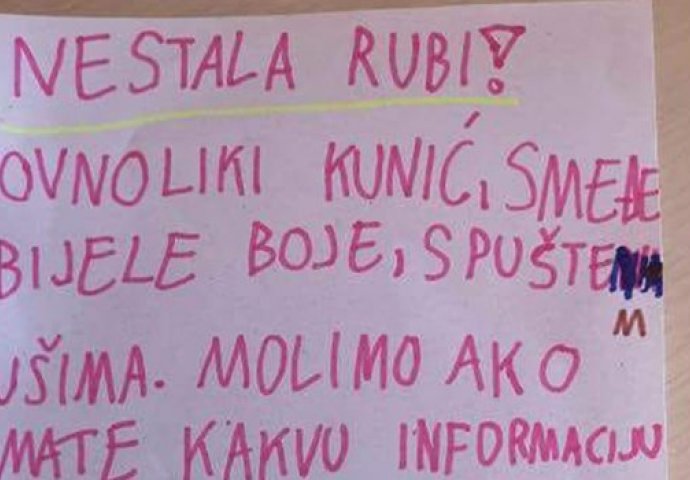 NESTALA RUBI!
OVNOLIKI KUNIĆ, SMEĐE
BIJELE BOJE, SPUŠTENIM
UŠIMA. MOLIMO AKO
MATE KAKVU INFORMACIJU